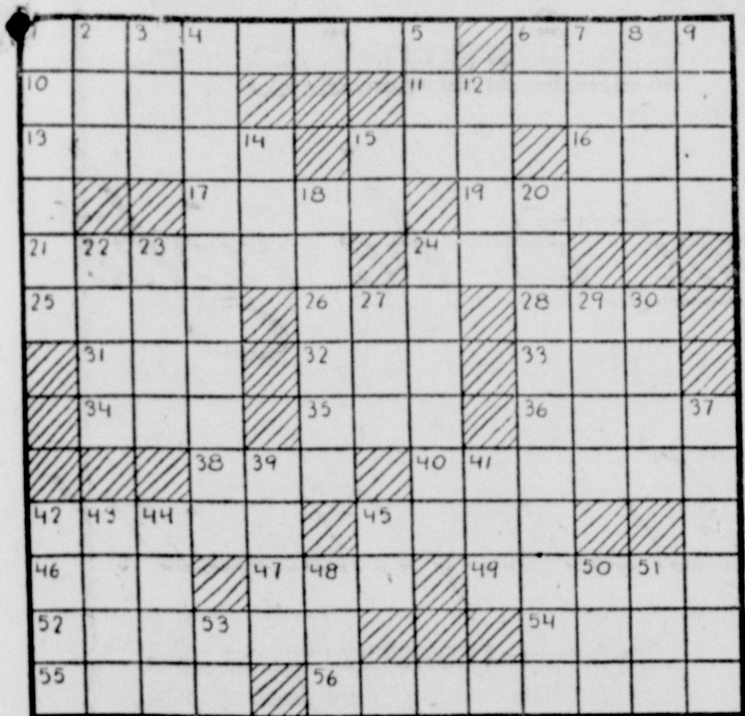 2 3 4 5 6 7 8 9
10 11 12
13 14 15 16
17 18 19 20
21 22 23 24
25 26 27 28 29 30
31 32 33
34 35 36 37
38 39 40 41
42 43 44 45
46 47 48 49 50 51
52 53 54
55 56